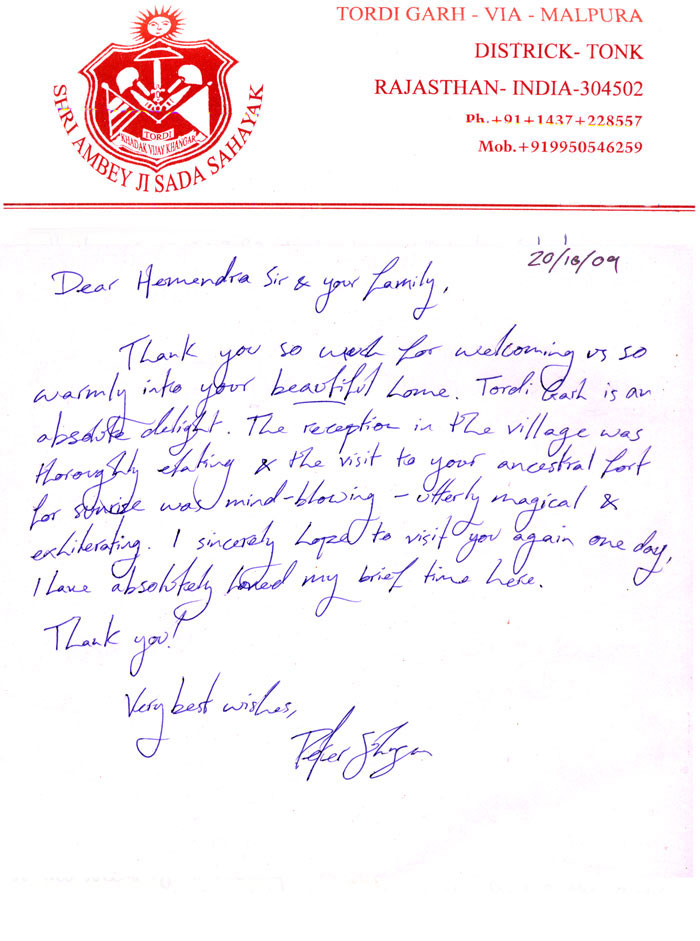 TORDI GARH - VIA - MALPURA
DISTRICK- TONK
RAJASTHAN- INDIA-304502
Ph.+91+1437+228557
Mob.+919950546259
SHRI AMBEY JI SADA SAHAYAK
TORDI
KHADAK VIJAY KHANGAR
20/10/09
Dear Hemendra Sir & your family,
Thank you so much for welcoming us so
warmly into your beautiful home. Tordi Garh is an
absolute delight. The reception in the village was
thoroughly elating & the visit to your ancestral fort
for sunrise was mind-blowing - utterly magical &
exhilerating. I sincerely hope to visit you again one day,
I have absolutely loved my brief time here.
Thank you!
Very best wishes,
Peter